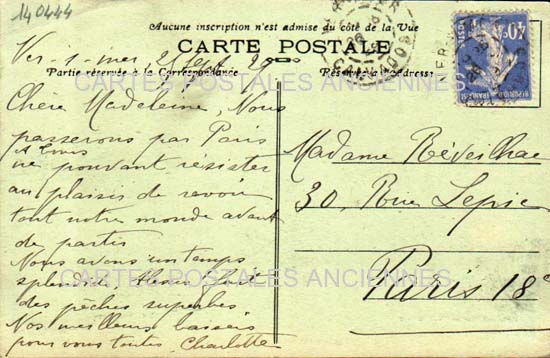 140444
Aucune inscription n'est admise du côté de la Vue
CARTE POSTALE
Partie réservée à la Correspondance
Réservée à l'adresse
Ver-s-mer 25 Sept
Chère Madeleine, Nous
passerons par Paris
ne pouvant résister
au plaisir de revoir
tout notre monde avant
de partir
Nous avons un temps
splendide
des pêches superbes
Nos meilleurs baisers
pour vous toutes, Charlotte
Madame Réveilhac
30, Rue Lepic
Paris 18e
40c
POSTES
REPUBLIQUE FRANÇAISE
CARTES POSTALES ANCIENNES
CARTES POSTALES ANCIENNES